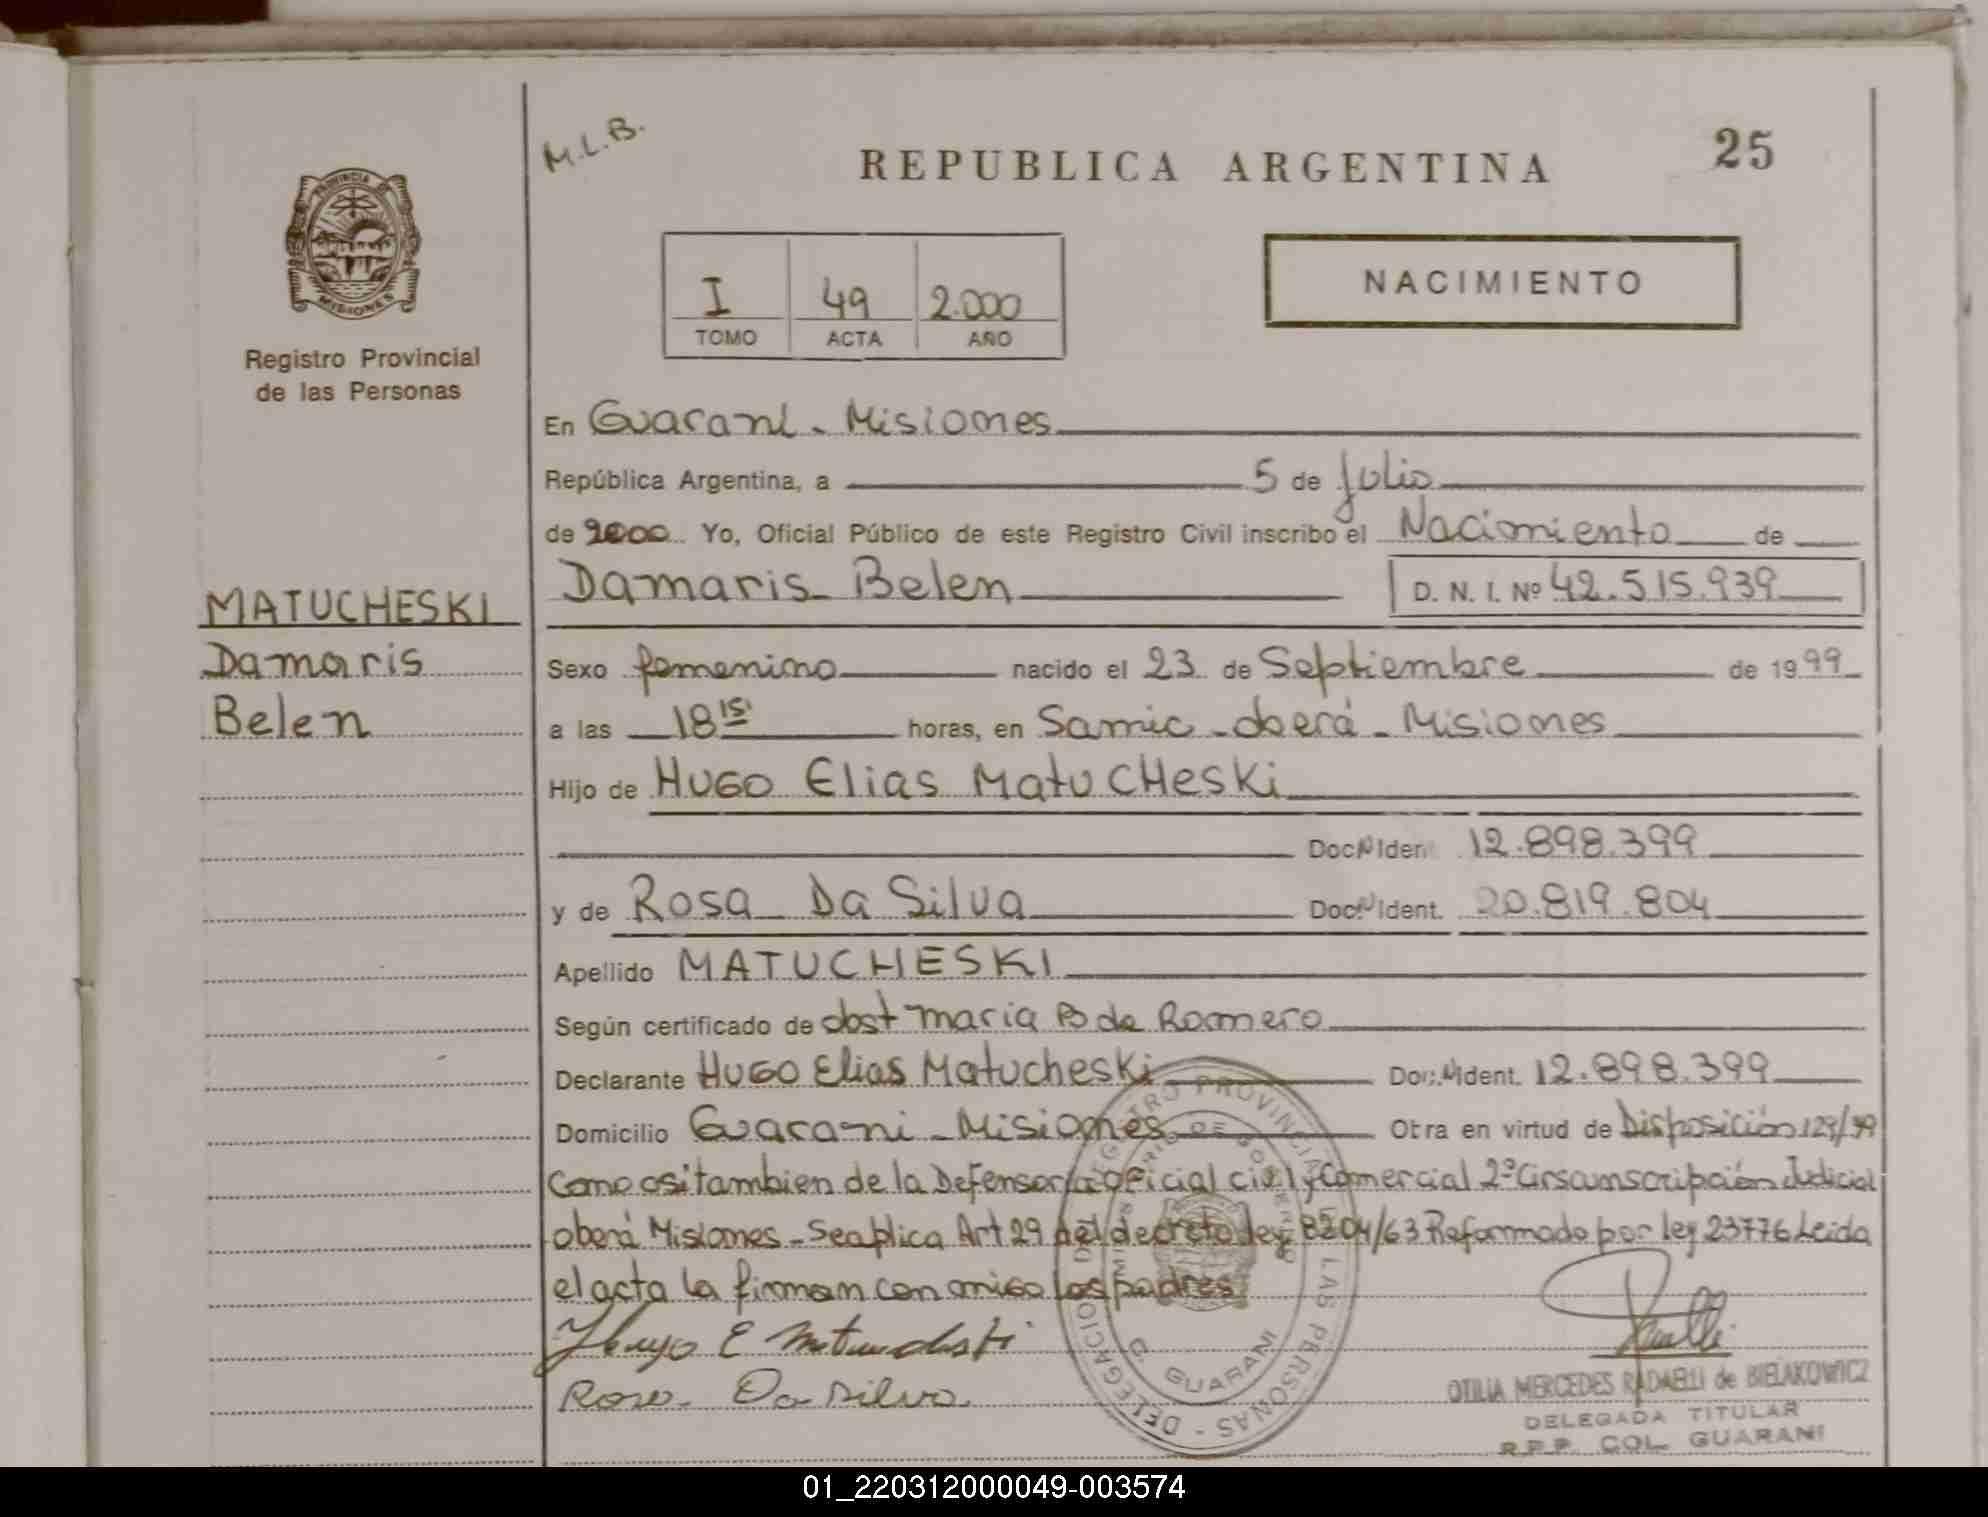 M.L.B.
REPUBLICA ARGENTINA
25
PROVINCIA DE
MISIONES
Registro Provincial
de las Personas
I 49 2.000
TOMO ACTA AÑO
NACIMIENTO
En Guarani - Misiones
República Argentina, a 5 de Julio
de 2000 Yo, Oficial Público de este Registro Civil inscribo el Nacimiento de
Damaris Belen D. N. I. Nº 42.515.939
MATUCHESKI
Damaris
Belen
Sexo femenino nacido el 23 de Septiembre de 1999
a las 18 15' horas, en Samic - oberá - Misiones
Hijo de HUGO Elias MatuCHesKi
Doc. Ident. 12.898.399
y de Rosa Da Silva Doc. Ident. 20.819.804
Apellido MATUCHESKI
Según certificado de obst Maria B de Romero
Declarante HUGO Elias Matucheski Doc. Ident. 12.898.399
Domicilio Guarani - Misiones Otra en virtud de Disposición 129/99
Como asi tambien de la Defensoria oficial civil y Comercial 2ª Circunscripción Judicial
oberá Misiones - Se aplica Art 29 del decreto ley 8204/63 Reformado por ley 23776 Leida
el acta la firman con migo los padres
Hugo E Matucheski
Rosa Da Silva
REGISTRO PROVINCIAL DE LAS PERSONAS - DELEGACION
GUARANI
OTILIA MERCEDES RADAELLI de BIELAKOWICZ
DELEGADA TITULAR
R.P.P. COL. GUARANI
01_220312000049-003574